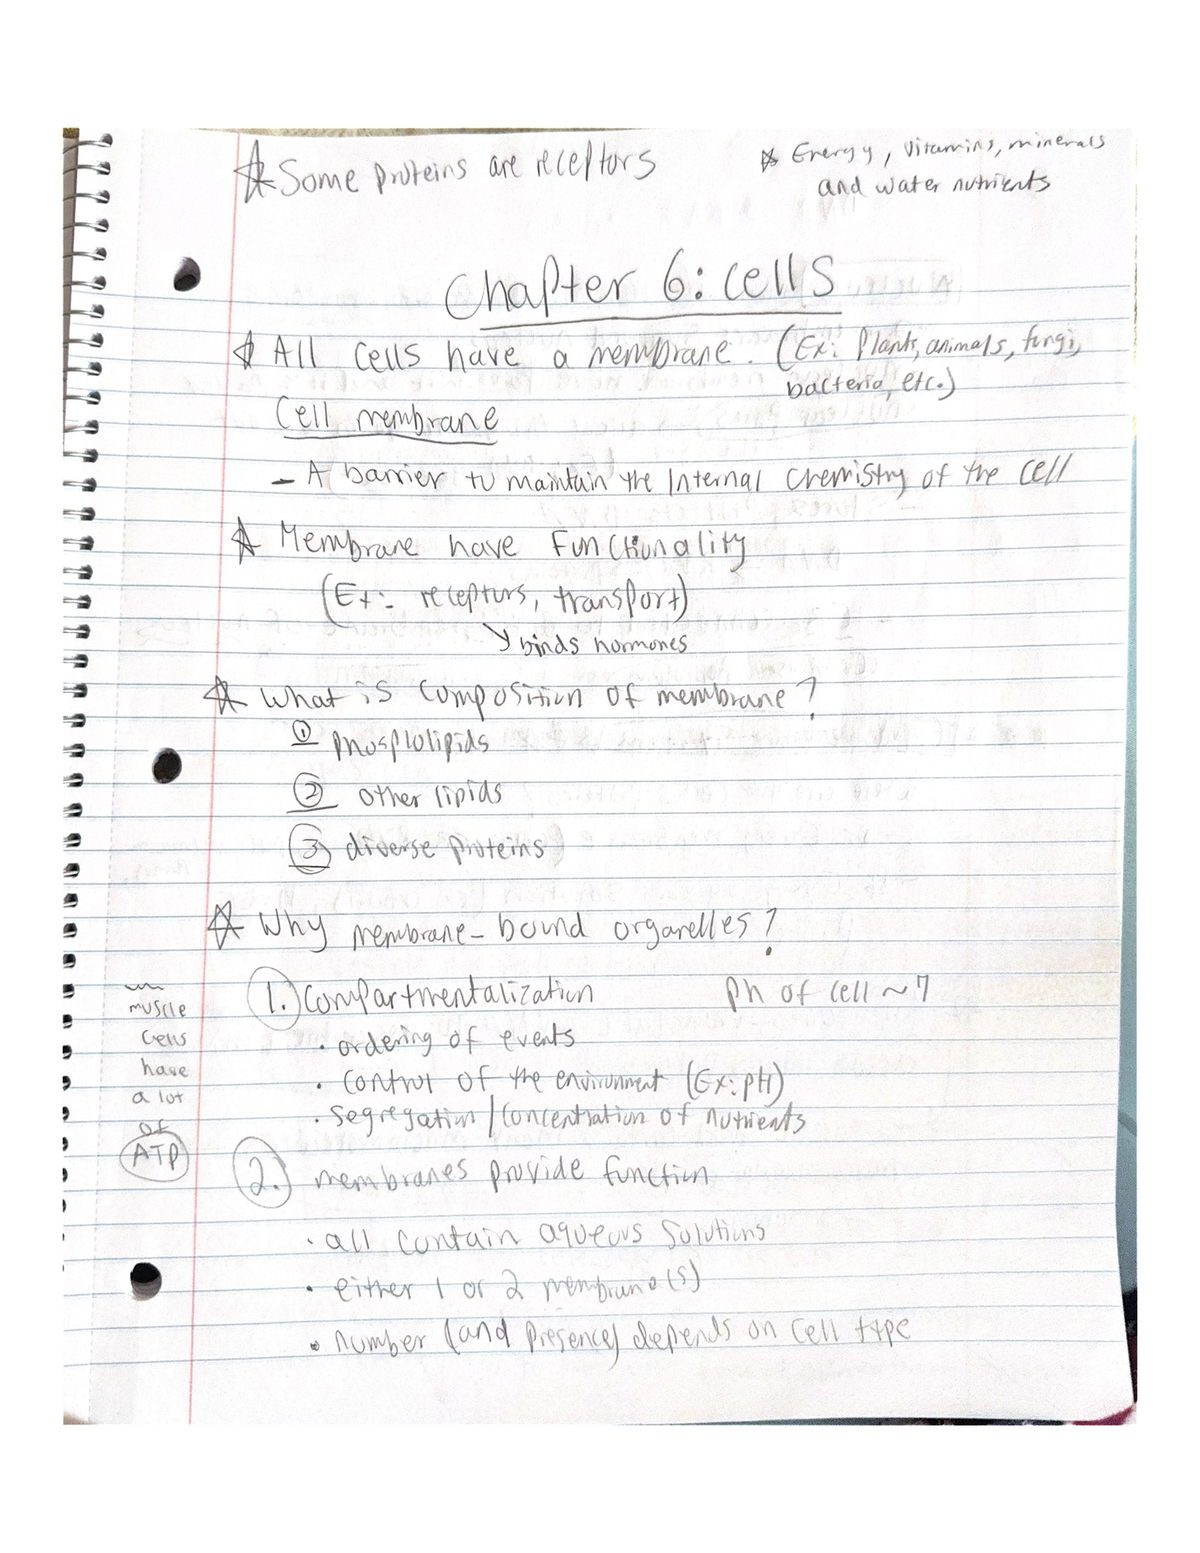 ☆ Some proteins are receptors
☆ Energy, vitamins, minerals
and water nutrients
Chapter 6: cells
☆ All cells have a membrane. (Ex: Plants, animals, fungi,
bacteria, etc.)
Cell membrane
- A barrier to maintain the Internal Chemistry of the cell
☆ Membrane have Functionality
(Ex:- receptors, transport)
↘ binds hormones
☆ What is composition of membrane?
① phosplolipids
② other lipids
③ diverse proteins
☆ Why membrane-bound organelles?
1. Compartmentalization
pH of cell ~ 7
· ordering of events
· control of the environment (Ex: pH)
· segregation/concentration of nutrients
muscle
cells
have
a lot
of
ATP
2. membranes provide function
· all contain aqueous solutions
· either 1 or 2 membrane(s)
· number (and presence) depends on cell type